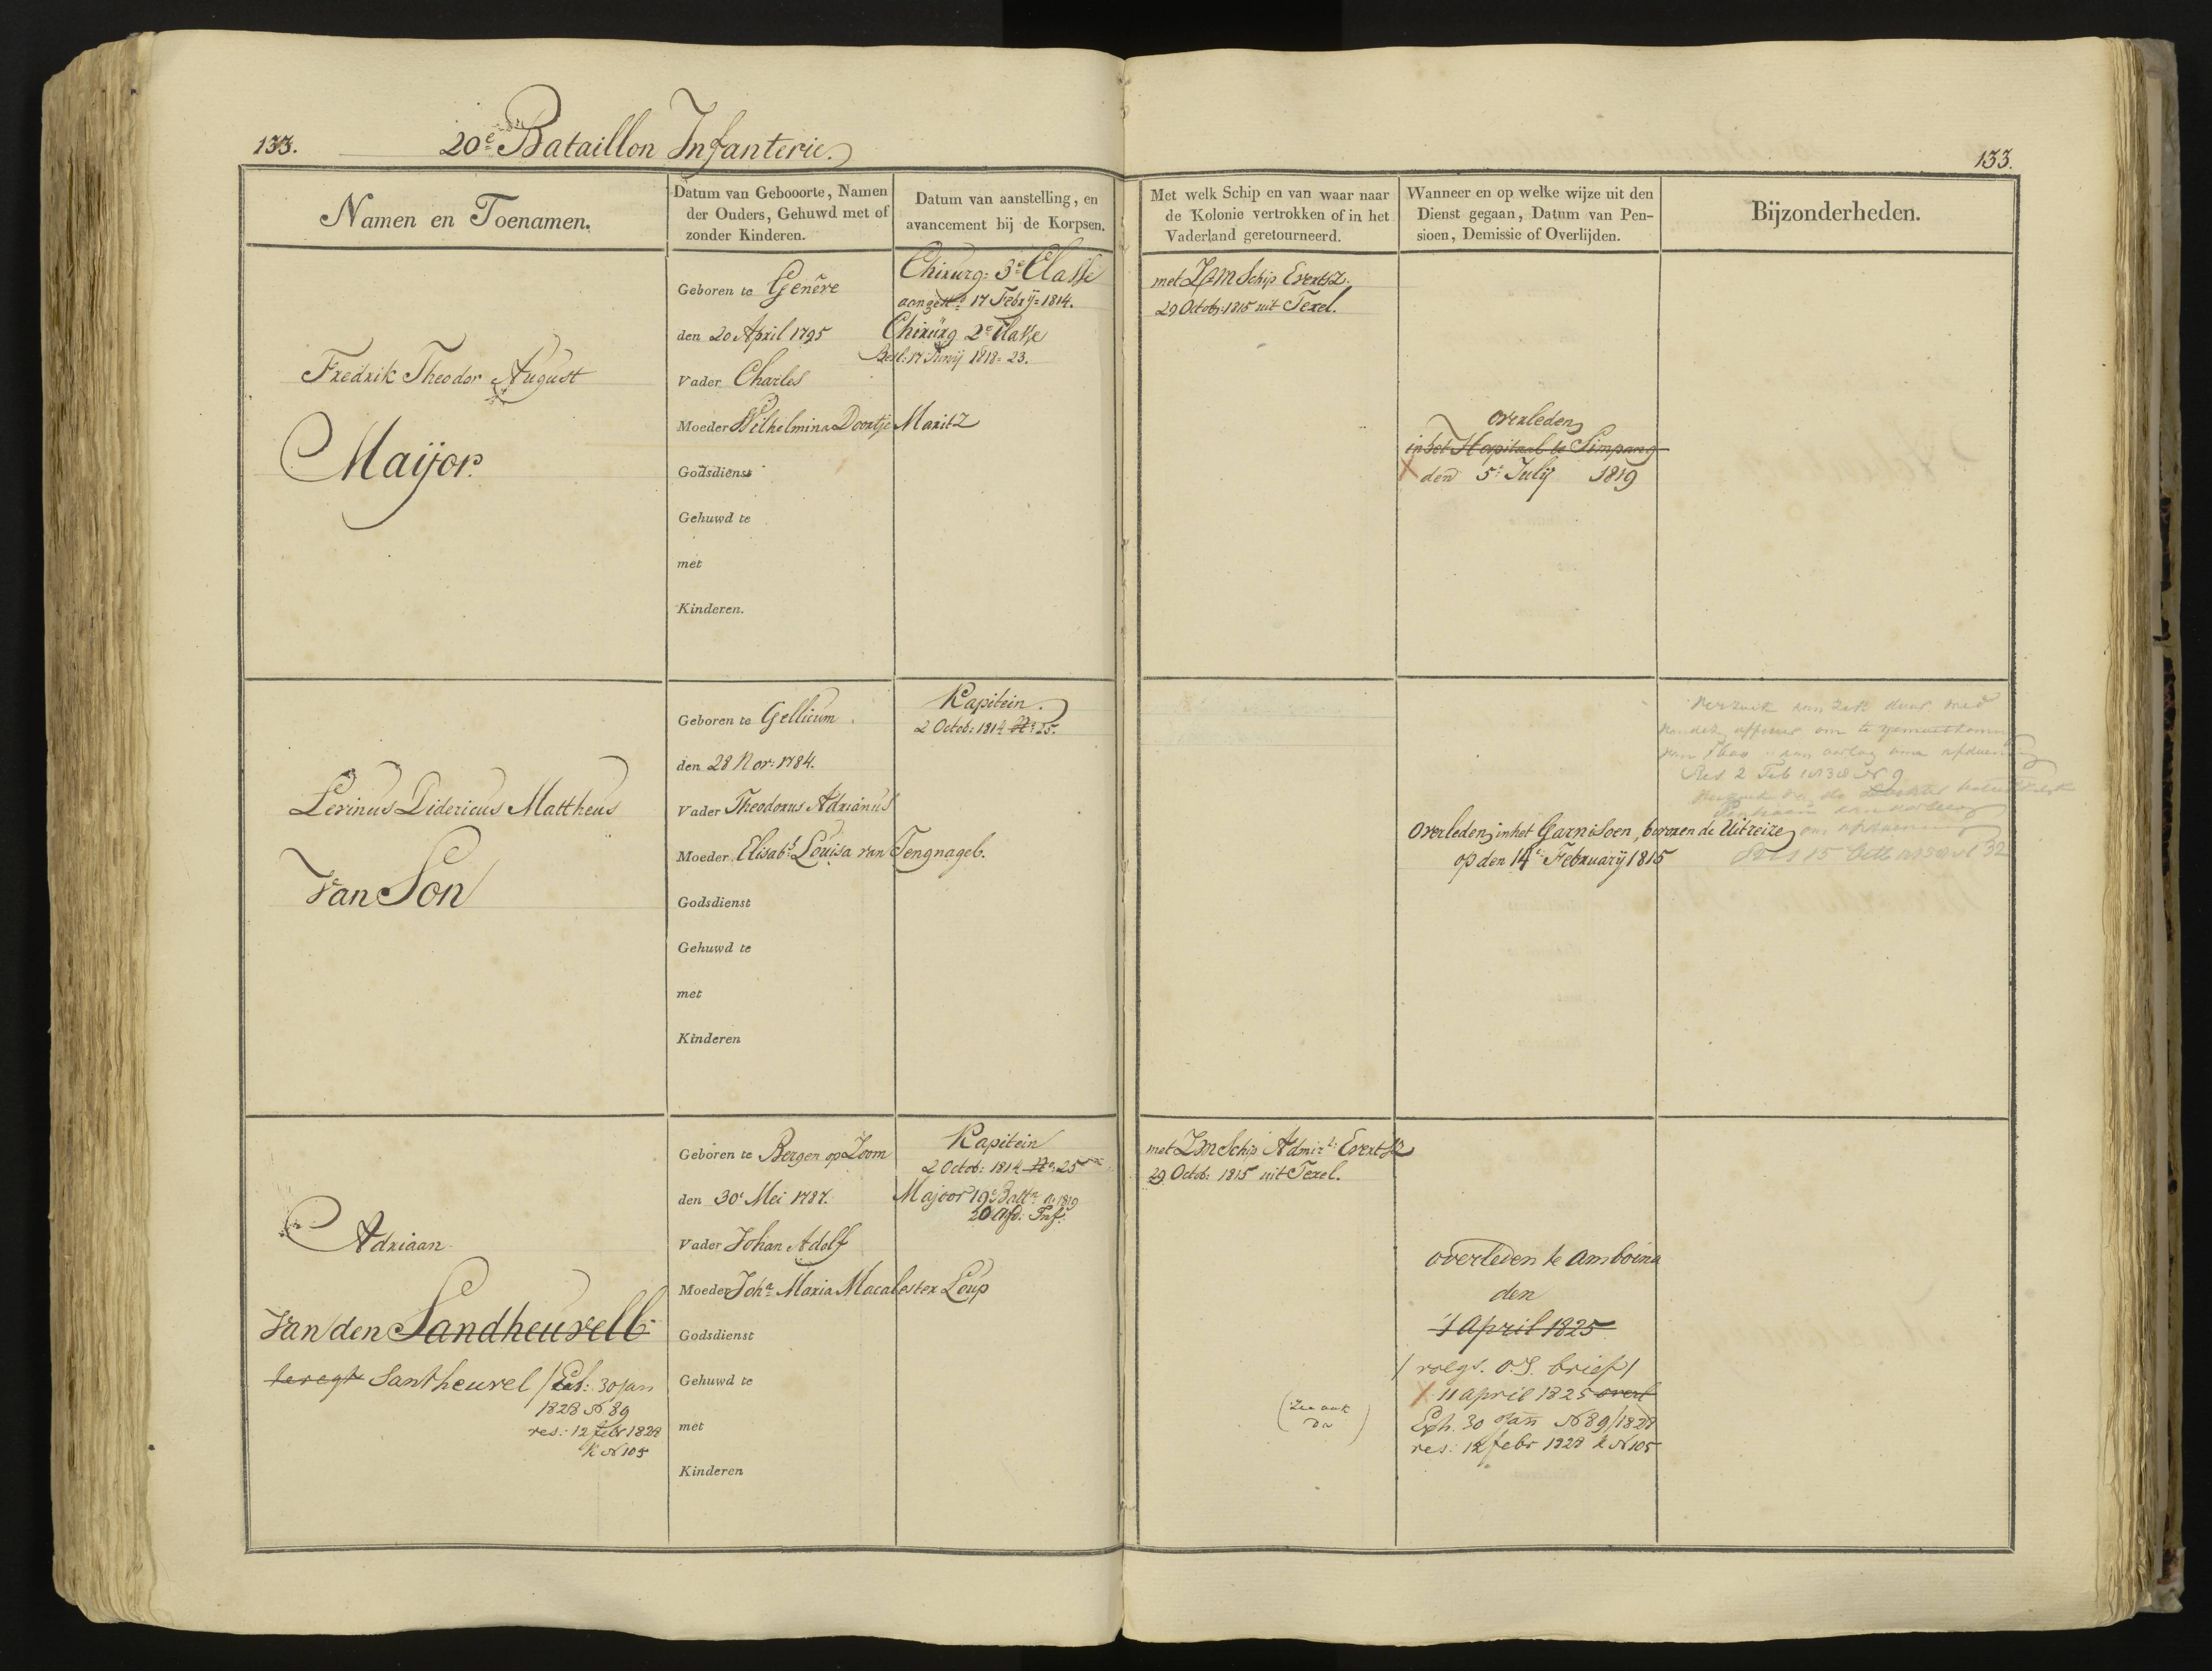 133.
20e Bataillon Infanterie.
133.
Namen en Toenamen.
Datum van Gebooorte, Namen
der Ouders, Gehuwd met of
zonder Kinderen.
Datum van aanstelling, en
avancement bij de Korpsen.
Met welk Schip en van waar naar
de Kolonie vertrokken of in het
Vaderland geretourneerd.
Wanneer en op welke wijze uit den
Dienst gegaan, Datum van Pen-
sioen, Demissie of Overlijden.
Bijzonderheden.
Fredrik Theodor August
Maijor.
Geboren te Genêve
den 20 April 1795
Vader Charles
Moeder Wilhelmina Doortje Maritz
Godsdienst
Gehuwd te
met
Kinderen.
Chirurg: 3e Classe
aangest: 17 Febrij 1814.
Chirurg 2e Classe
Besl: 17 Junij 1818 = 23.
met ZM Schip Evertsz.
29 Octob: 1815 uit Texel.
overleden
in het Hospitaal te Simpang
den 5e July 1819
Levinus Didericus Mattheus
Van Son
Geboren te Gellicum
den 28 Nov: 1784.
Vader Theodorus Adrianus
Moeder Elisabt Louisa van Tengnagel.
Godsdienst
Gehuwd te
met
Kinderen
Kapitein.
2 Octob: 1814 No 25.
Overleden, in het Garnisoen, voor de Uitreize,
op den 14e February 1815
Res 2 Feb No 9
Adriaan
Van den Sandheuvell
Santheuvel / Exh: 30 Jan
1828 No 89
res: 12 febr 1828
k No 105
Geboren te Bergen op Zoom
den 30e Mei 1787.
Vader Johan Adolf
Moeder Joha Maria Macalester Loup
Godsdienst
Gehuwd te
met
Kinderen
Kapitein
2 Octob: 1814 No 25
Majoor 19e Batln 1819
20 Afd: Inf:
met ZM Schip Admirl: Evertsz
29 Octob: 1815 uit Texel.
overleden te Amboina
den
April 1825
/ volgs. O.I. brief /
11 april 1825 overl
Exh. 30 Jan No 89/1828
res: 12 febr 1828 k No 105